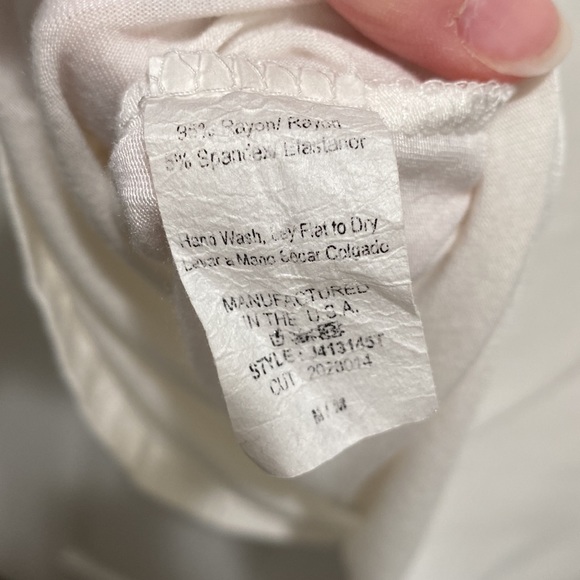 95% Rayon/ Rayon
5% Spandex/ Elastanor
Hand Wash, Lay Flat to Dry
Lavar a Mano Secar Colgado
MANUFACTURED
IN THE U.S.A.
STYLE: J413145T
CUT: 2023014
M / M